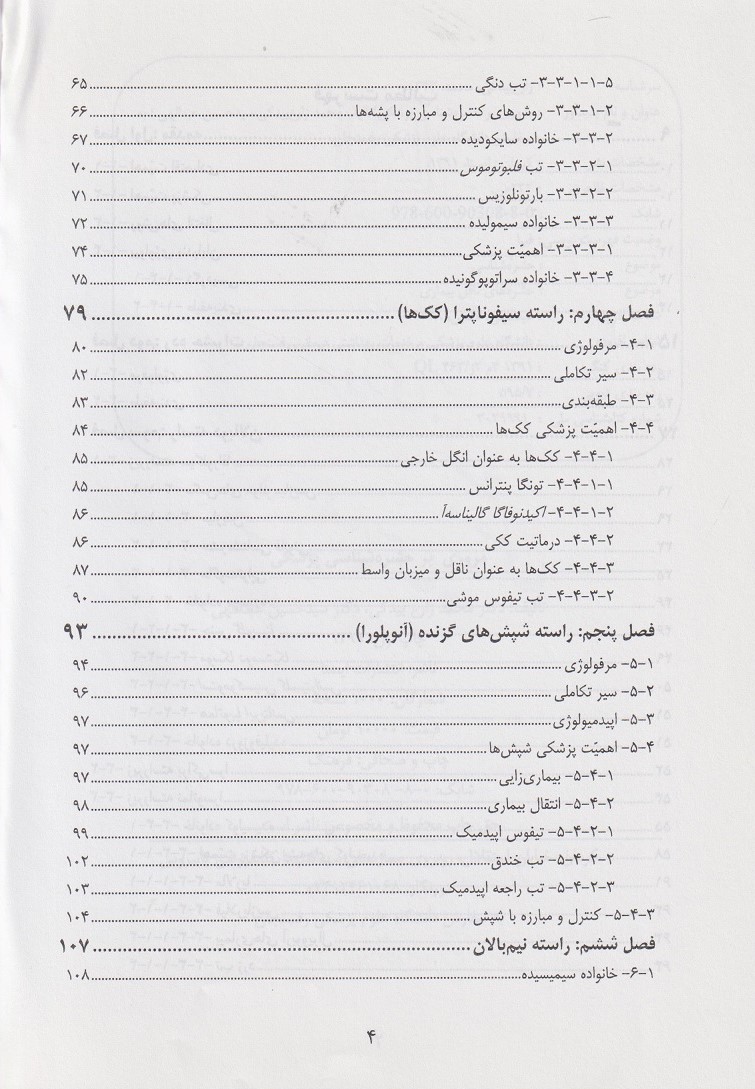 ۳-۳-۱-۱-۵- تب دنگی ۶۵
۳-۳-۱-۲- روش‌های کنترل و مبارزه با پشه‌ها ۶۶
۳-۳-۲- خانواده سایکودیده ۶۷
۳-۳-۲-۱- تب فلبوتوموس ۷۰
۳-۳-۲-۲- بارتونلوزیس ۷۱
۳-۳-۳- خانواده سیمولیده ۷۲
۳-۳-۳-۱- اهمیّت پزشکی ۷۴
۳-۳-۴- خانواده سراتوپوگونیده ۷۵
فصل چهارم: راسته سیفوناپترا (کک‌ها) ۷۹
۴-۱- مرفولوژی ۸۰
۴-۲- سیر تکاملی ۸۲
۴-۳- طبقه‌بندی ۸۳
۴-۴- اهمیّت پزشکی کک‌ها ۸۴
۴-۴-۱- کک‌ها به عنوان انگل خارجی ۸۵
۴-۴-۱-۱- تونگا پنترانس ۸۵
۴-۴-۱-۲- اکیدنوفاگا گالیناسه‌آ ۸۶
۴-۴-۲- درماتیت ککی ۸۶
۴-۴-۳- کک‌ها به عنوان ناقل و میزبان واسط ۸۷
۴-۴-۳-۲- تب تیفوس موشی ۹۰
فصل پنجم: راسته شپش‌های گزنده (آنوپلورا) ۹۳
۵-۱- مرفولوژی ۹۴
۵-۲- سیر تکاملی ۹۶
۵-۳- اپیدمیولوژی ۹۷
۵-۴- اهمیّت پزشکی شپش‌ها ۹۷
۵-۴-۱- بیماری‌زایی ۹۷
۵-۴-۲- انتقال بیماری ۹۸
۵-۴-۲-۱- تیفوس اپیدمیک ۹۹
۵-۴-۲-۲- تب خندق ۱۰۲
۵-۴-۲-۳- تب راجعه اپیدمیک ۱۰۳
۵-۴-۳- کنترل و مبارزه با شپش ۱۰۴
فصل ششم: راسته نیم‌بالان ۱۰۷
۶-۱- خانواده سیمیسیده ۱۰۸
۴